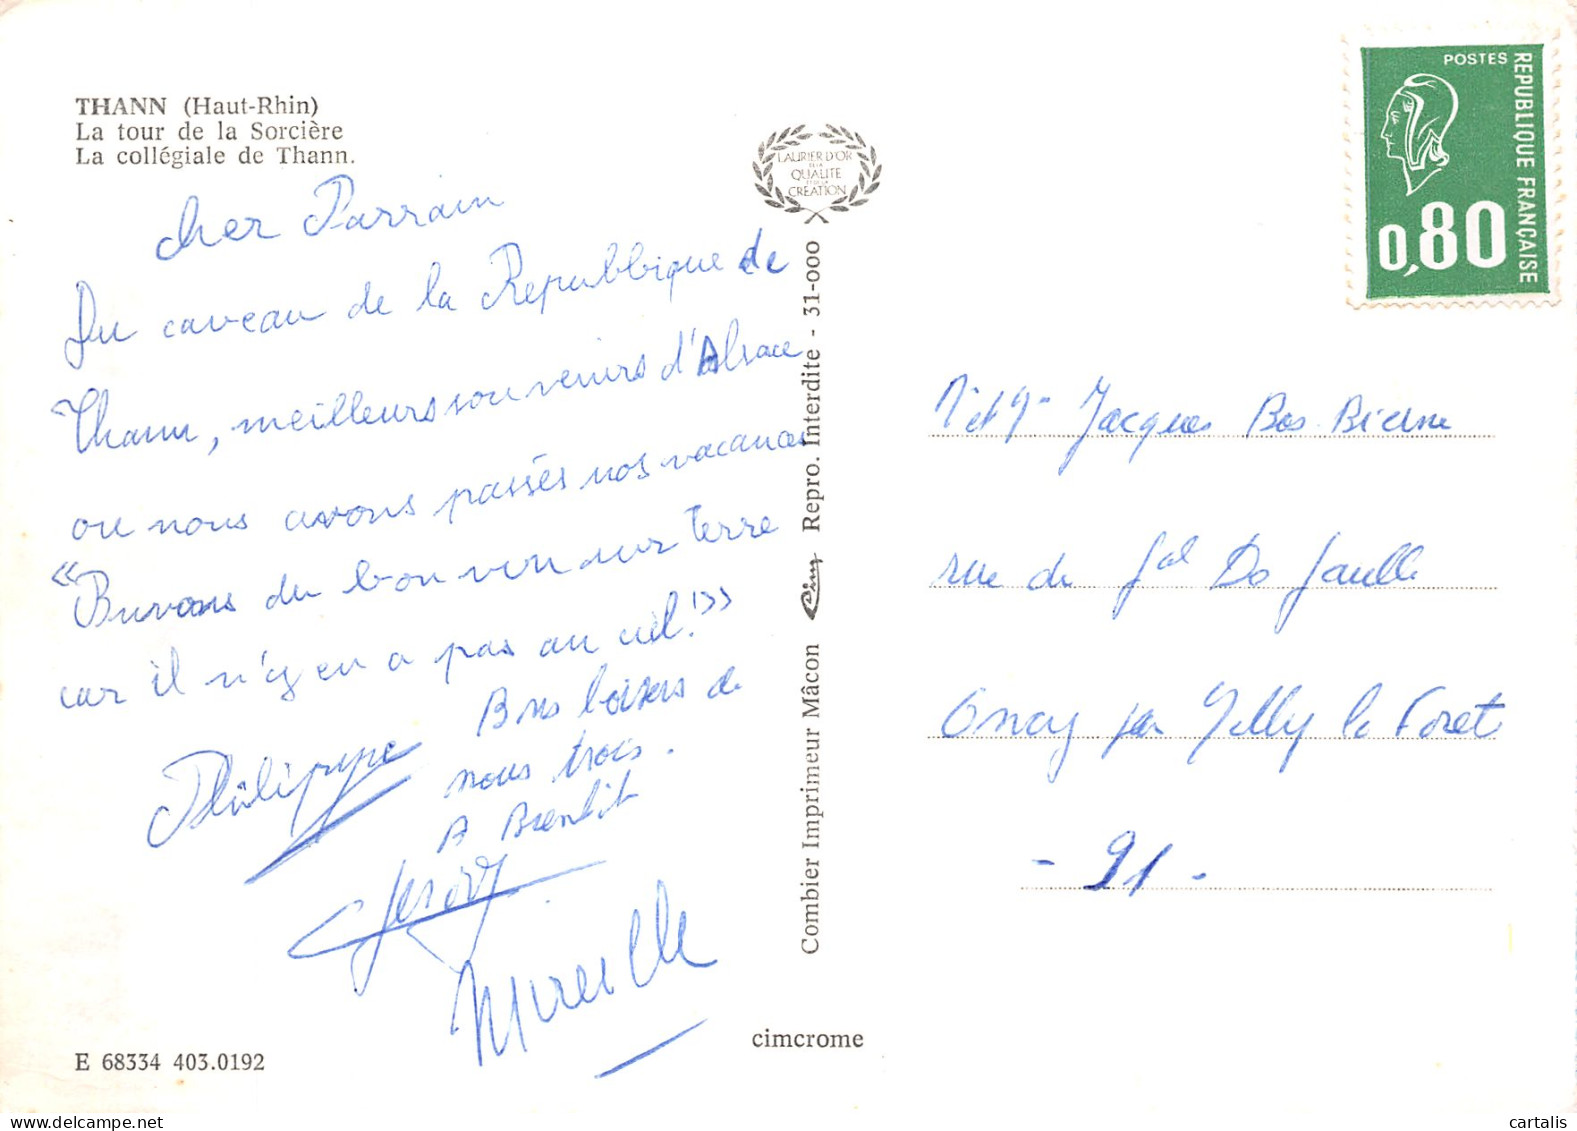 THANN (Haut-Rhin)
La tour de la Sorcière
La collégiale de Thann.
cher Parrain
Du caveau de la Republique de
Thann, meilleurs souvenirs d'Alsace
ou nous avons passés nos vacances
« Buvons du bon vin sur terre
car il n'y en a pas au ciel! »
Bons baisers de
nous trois.
A Bientôt
Philippe
Mireille
E 68334 403.0192
LAURIER D'OR
DE LA
QUALITE
ET DE LA
CREATION
Combier Imprimeur Mâcon Cim Repro. Interdite - 31-000
cimcrome
POSTES
REPUBLIQUE FRANÇAISE
0,80
Jacques Bos. Bierne
rue de Gal De Gaulle
Oncy par Milly la Foret
- 91 -
cartalis